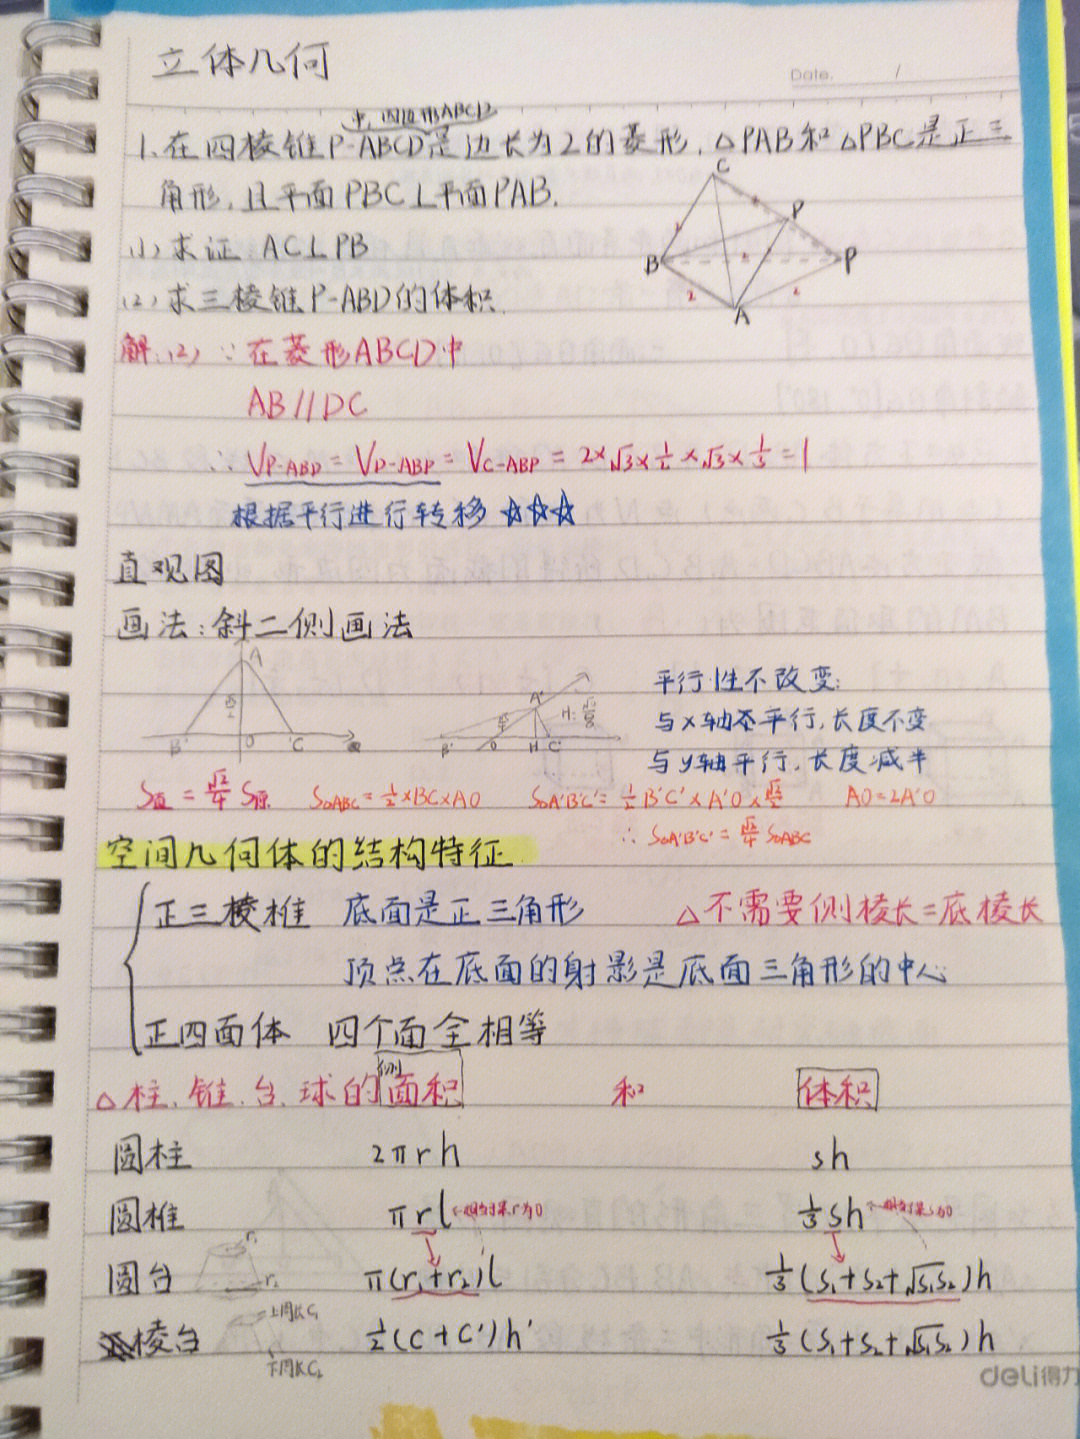 立体几何
Date. /
中,四边形ABCD
1.在四棱锥P-ABCD是边长为2的菱形,△PAB和△PBC是正三
角形,且平面PBC⊥平面PAB.
(1)求证 AC⊥PB
(2)求三棱锥P-ABD的体积
C
P
B
P
A
2
2
解:(2) ∵在菱形ABCD中
AB//DC
∴ V_{P-ABD} = V_{D-ABP} = V_{C-ABP} = 2×√3×1/2×√3×1/3=1
根据平行进行转移 ☆☆☆
直观图
画法:斜二侧画法
A
B O C
A'
B' O H C'
平行性不改变:
与x轴平行,长度不变
与y轴平行,长度减半
S直 = √2/4 S原 S△ABC=1/2×BC×AO S△A'B'C'=1/2 B'C'×A'O×√2/2 AO=2A'O
∴ S△A'B'C'=√2/4 S△ABC
空间几何体的结构特征
正三棱椎 底面是正三角形 △不需要侧棱长=底棱长
顶点在底面的射影是底面三角形的中心
正四面体 四个面全相等
△柱、锥、台、球的(侧)面积 和 体积
圆柱 2πrh sh
圆椎 πrl ←相当于某r为0 1/3sh ←相当于某s为0
圆台 π(r₁+r₂)l 1/3(S₁+S₂+√S₁S₂)h
棱台 上周长C₁ 下周长C₂ 1/2(C+C')h' 1/3(S₁+S₂+√S₁S₂)h
deli得力